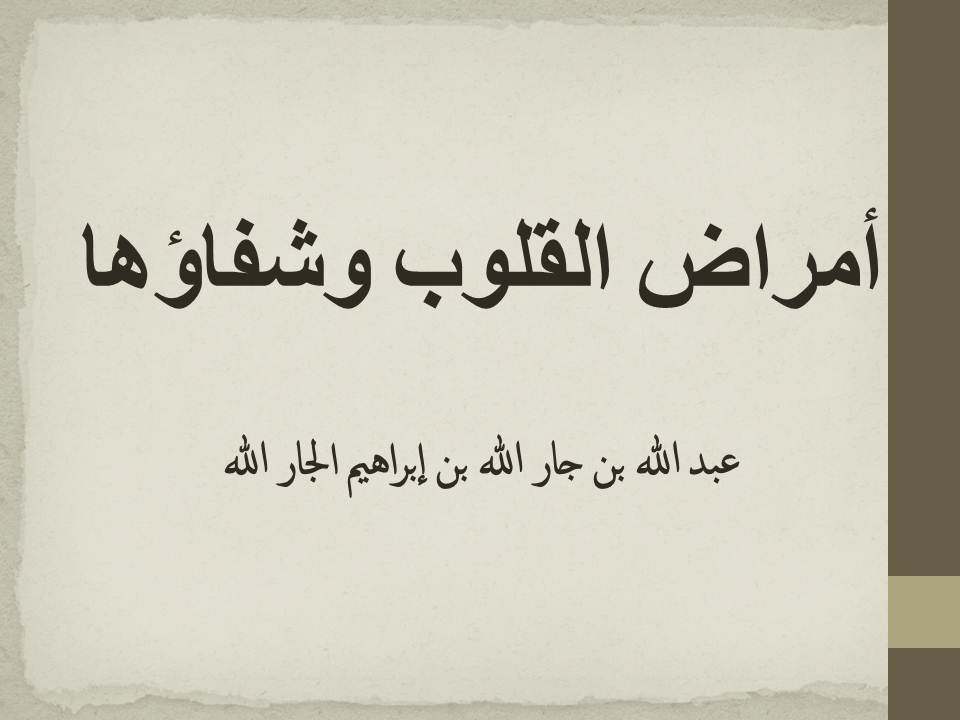 أمراض القلوب وشفاؤها
عبد الله بن جار الله بن إبراهيم الجار الله